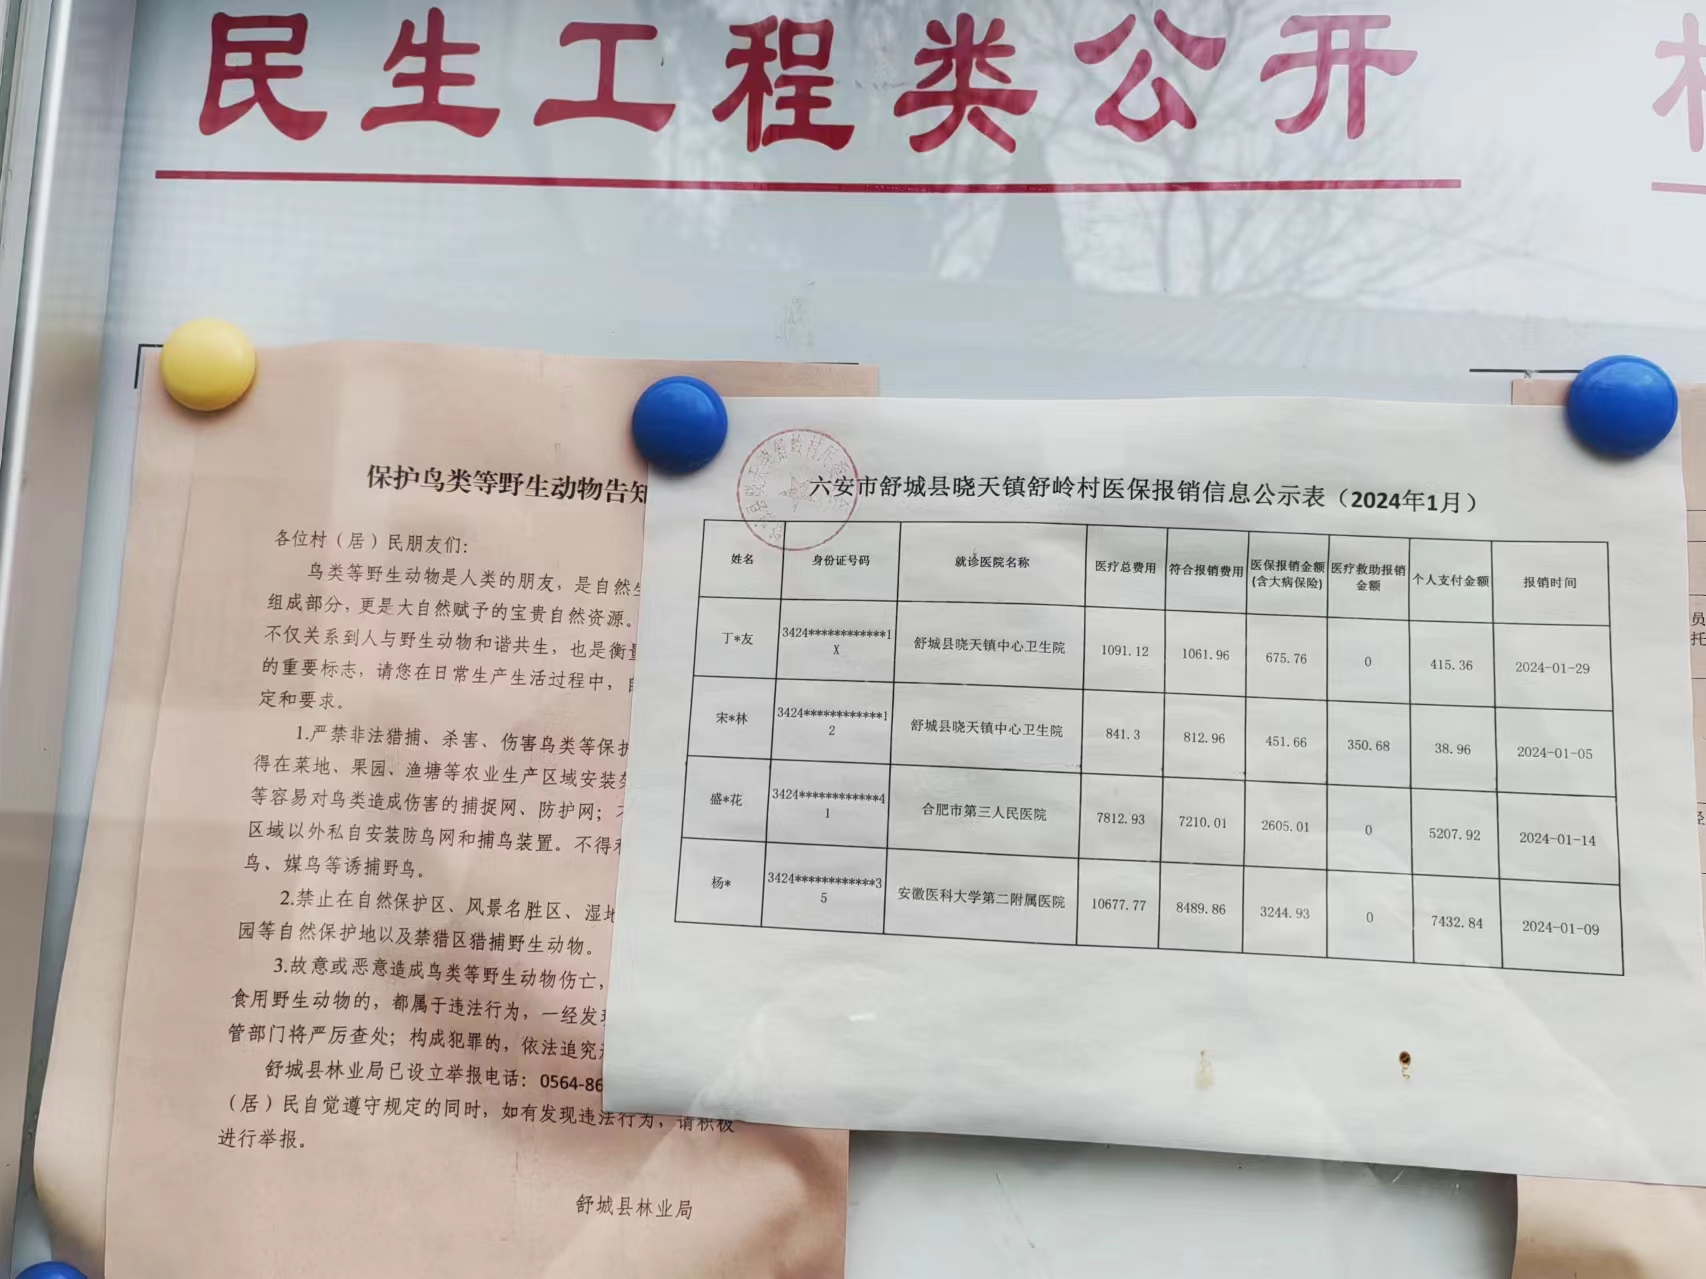 民生工程类公开
保护鸟类等野生动物告知
各位村（居）民朋友们：
鸟类等野生动物是人类的朋友，是自然生
组成部分，更是大自然赋予的宝贵自然资源。
不仅关系到人与野生动物和谐共生，也是衡量
的重要标志，请您在日常生产生活过程中，自
定和要求。
1.严禁非法猎捕、杀害、伤害鸟类等保护
得在菜地、果园、渔塘等农业生产区域安装
等容易对鸟类造成伤害的捕捉网、防护网；
区域以外私自安装防鸟网和捕鸟装置。不得
鸟、媒鸟等诱捕野鸟。
2.禁止在自然保护区、风景名胜区、湿地
园等自然保护地以及禁猎区猎捕野生动物。
3.故意或恶意造成鸟类等野生动物伤亡，
食用野生动物的，都属于违法行为，一经发现
管部门将严厉查处；构成犯罪的，依法追究
舒城县林业局已设立举报电话：0564-86
（居）民自觉遵守规定的同时，如有发现违法行为，请积极
进行举报。
舒城县林业局
六安市舒城县晓天镇舒岭村医保报销信息公示表（2024年1月）
姓名 身份证号码 就诊医院名称 医疗总费用 符合报销费用 医保报销金额(含大病保险) 医疗救助报销金额 个人支付金额 报销时间
丁*友 3424************1X 舒城县晓天镇中心卫生院 1091.12 1061.96 675.76 0 415.36 2024-01-29
宋*林 3424************12 舒城县晓天镇中心卫生院 841.3 812.96 451.66 350.68 38.96 2024-01-05
盛*花 3424************41 合肥市第三人民医院 7812.93 7210.01 2605.01 0 5207.92 2024-01-14
杨* 3424************35 安徽医科大学第二附属医院 10677.77 8489.86 3244.93 0 7432.84 2024-01-09
员
托